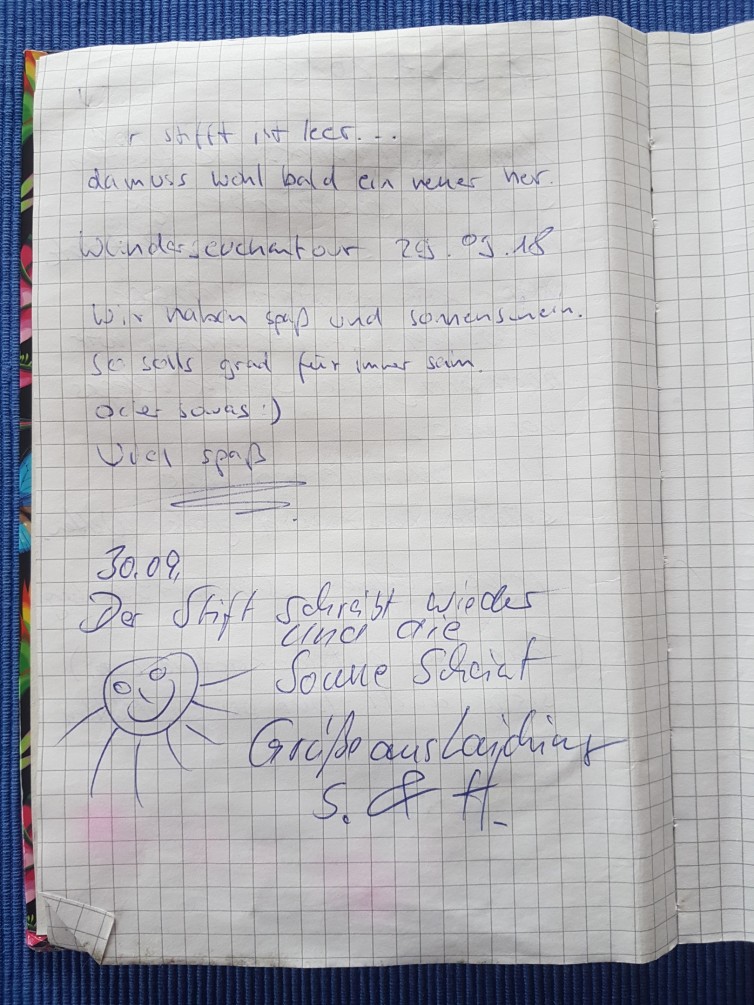 r stifft ist leer...
da muss wohl bald ein neuer her.
29.09.18
Wir haben spaß und sonnenschein.
So solls grad für immer sein.
oder sowas :)
Viel spaß
30.09.
Der Stift schreibt wieder
und die
Sonne Scheint
Grüße aus
S. & H.